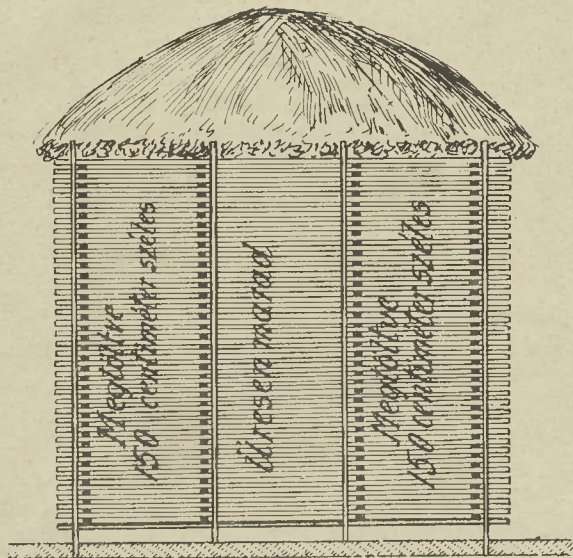 Megtöltve
150 centiméter széles
üresen marad
Megtöltve
150 centiméter széles